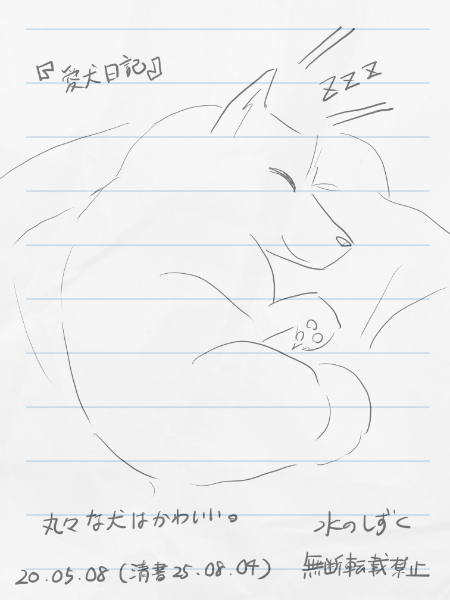 『愛犬日記』
ZZZ
丸々な犬はかわいい。
水のしずく
20.05.08(清書25.08.04)
無断転載禁止